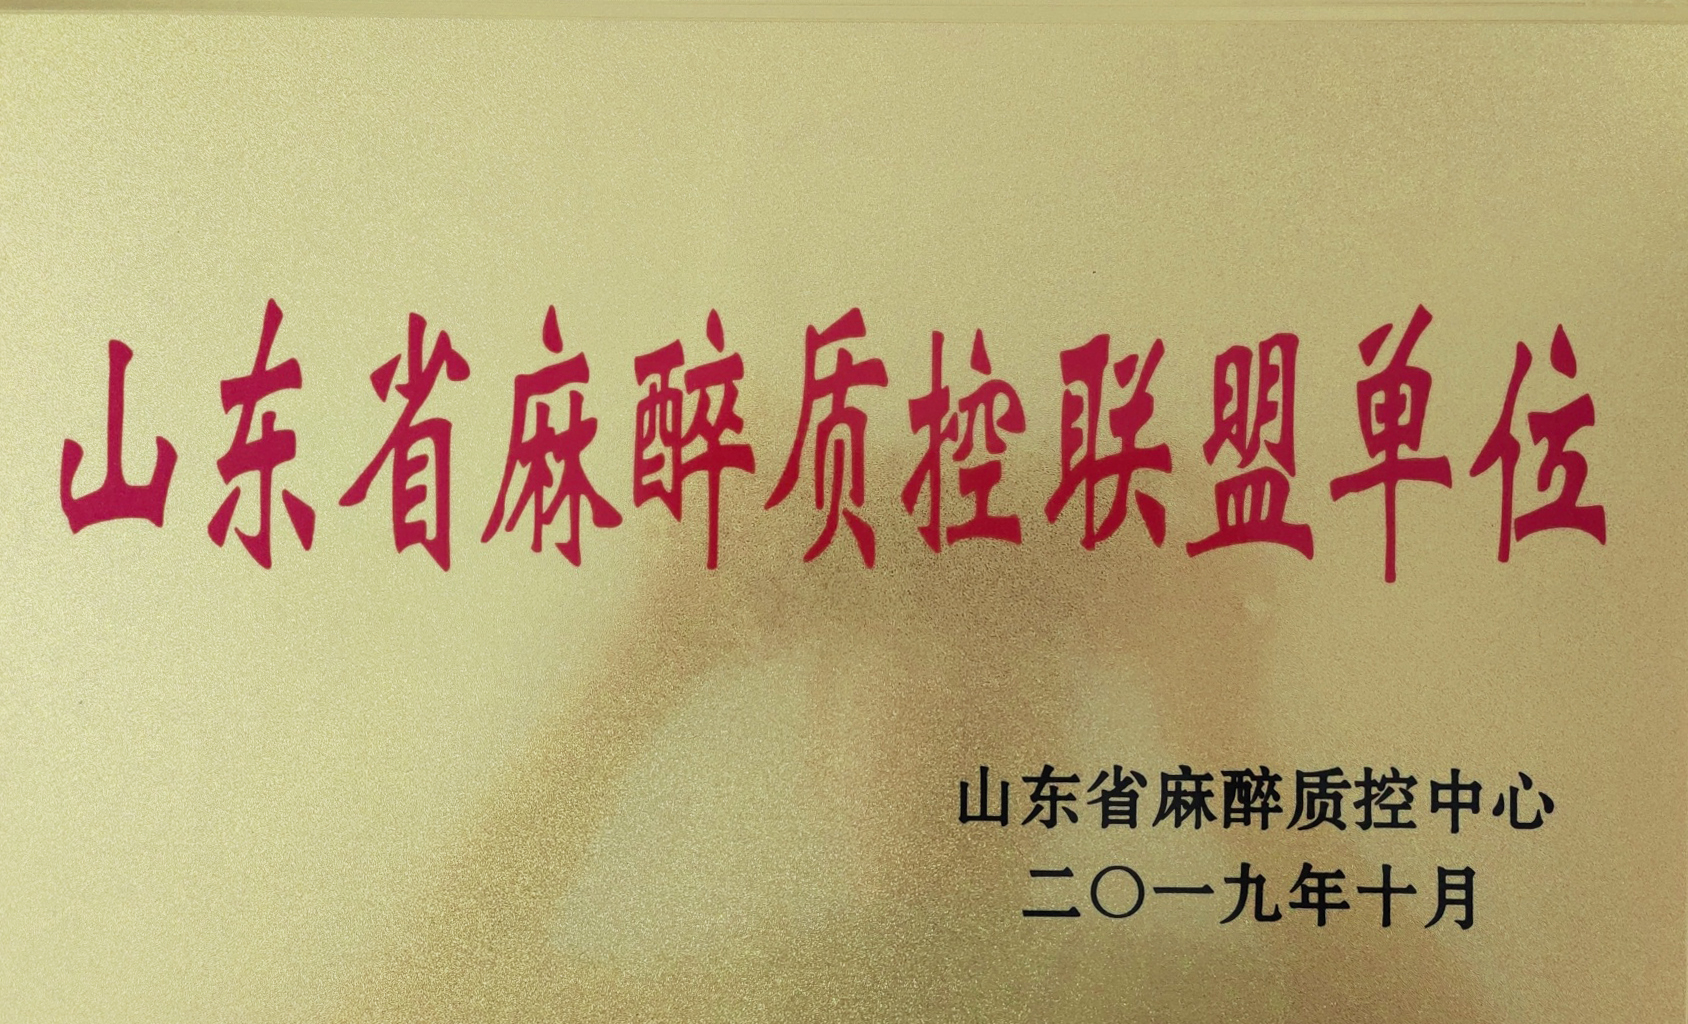 山东省麻醉质控联盟单位
山东省麻醉质控中心
二〇一九年十月